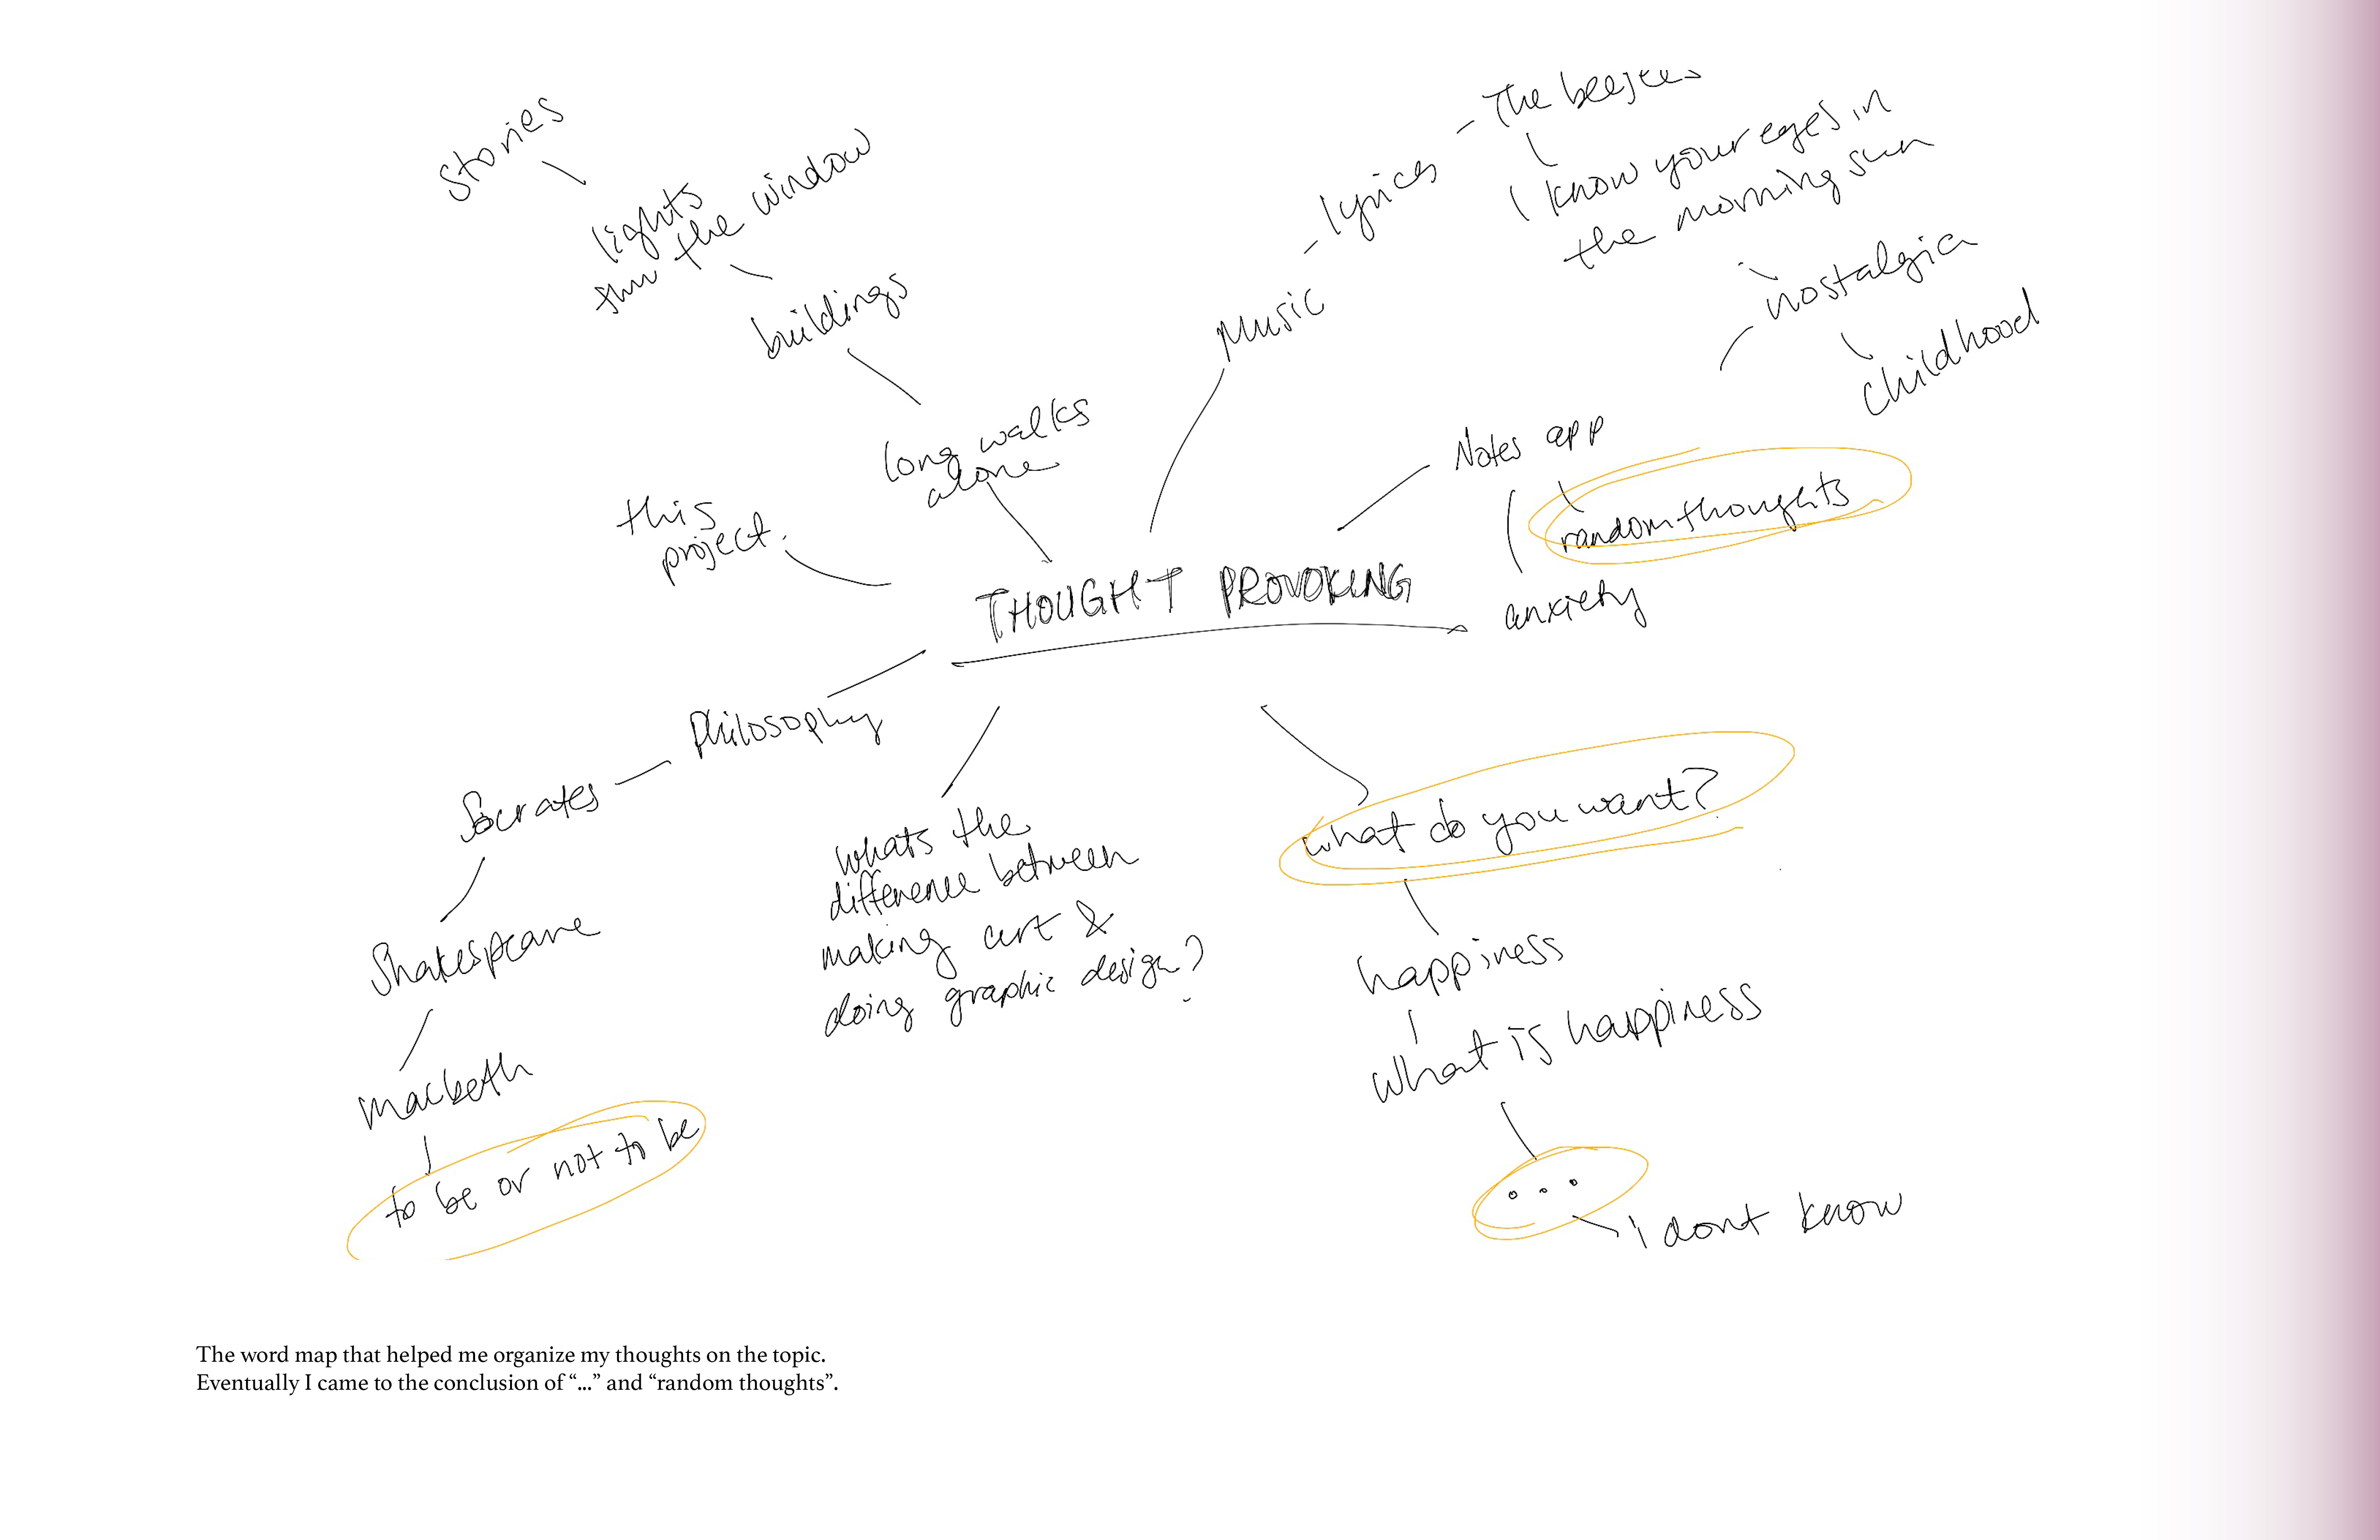 The beegees
stories
I know your eyes in
the morning sun
lights
thru the window
lyrics
nostalgia
buildings
Music
childhood
long walks
alone
Notes app
random thoughts
this
project.
THOUGHT PROVOKING
anxiety
Philosophy
Socrates
what do you want?
whats the
difference between
making art &
doing graphic design?
Shakespeare
happiness
what is happiness
macbeth
to be or not to be
...
i dont know
The word map that helped me organize my thoughts on the topic.
Eventually I came to the conclusion of “...” and “random thoughts”.